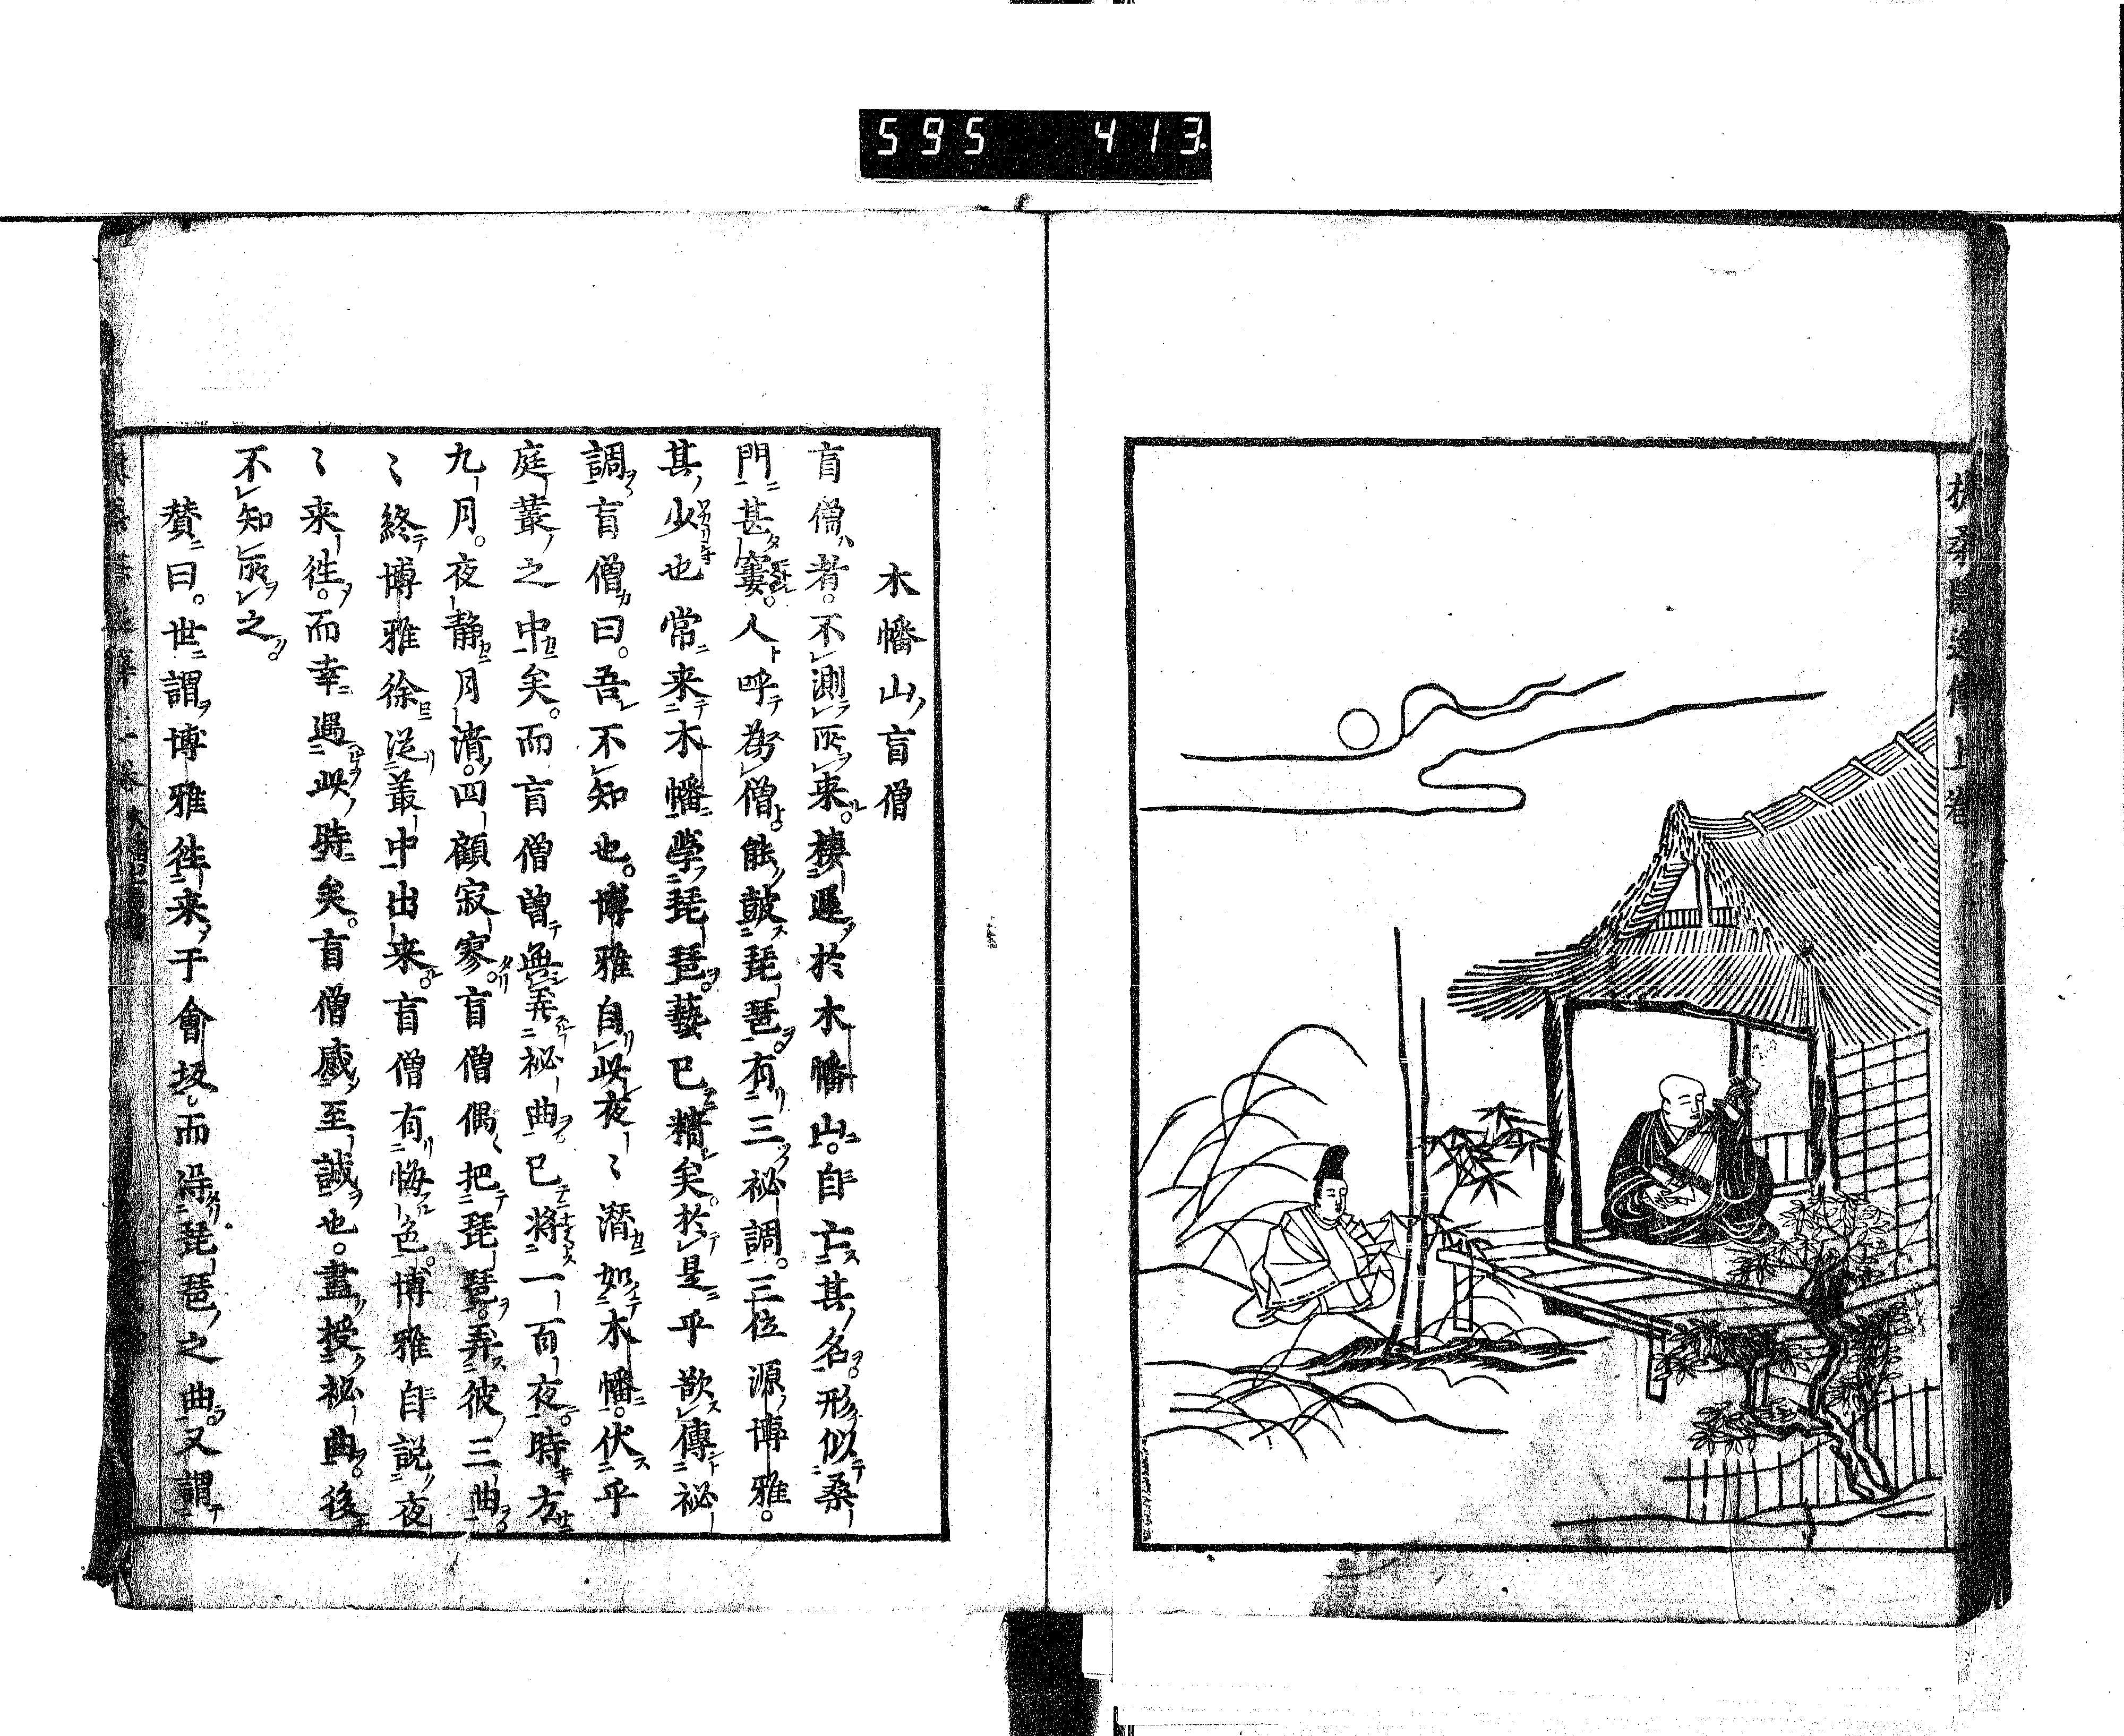 595 413
扶桑隠逸傳上巻
木幡山ノ盲僧
盲僧ハ者。不測所来。棲遲於木幡山。自亡其名。形似桑
門甚窶。人呼為僧。能鼓琵琶。有三祕調。三位源博雅。
其少也常来木幡學琵琶。藝已精矣。於是乎欲傳祕
調。盲僧曰。吾不知也。博雅自此夜〻潜如木幡。伏乎
庭叢之中矣。而盲僧曽無弄祕曲。已将一百夜。時方
九月。夜静月清。四顧寂寥。盲僧偶把琵琶。弄彼三曲
〻終博雅徐從叢中出来。盲僧有悔色。博雅自説夜
〻来徃。而幸遇此時矣。盲僧感至誠也。盡授祕曲。後
不知所之。
賛曰。世謂博雅徃来于會坂而得琵琶之曲。又謂